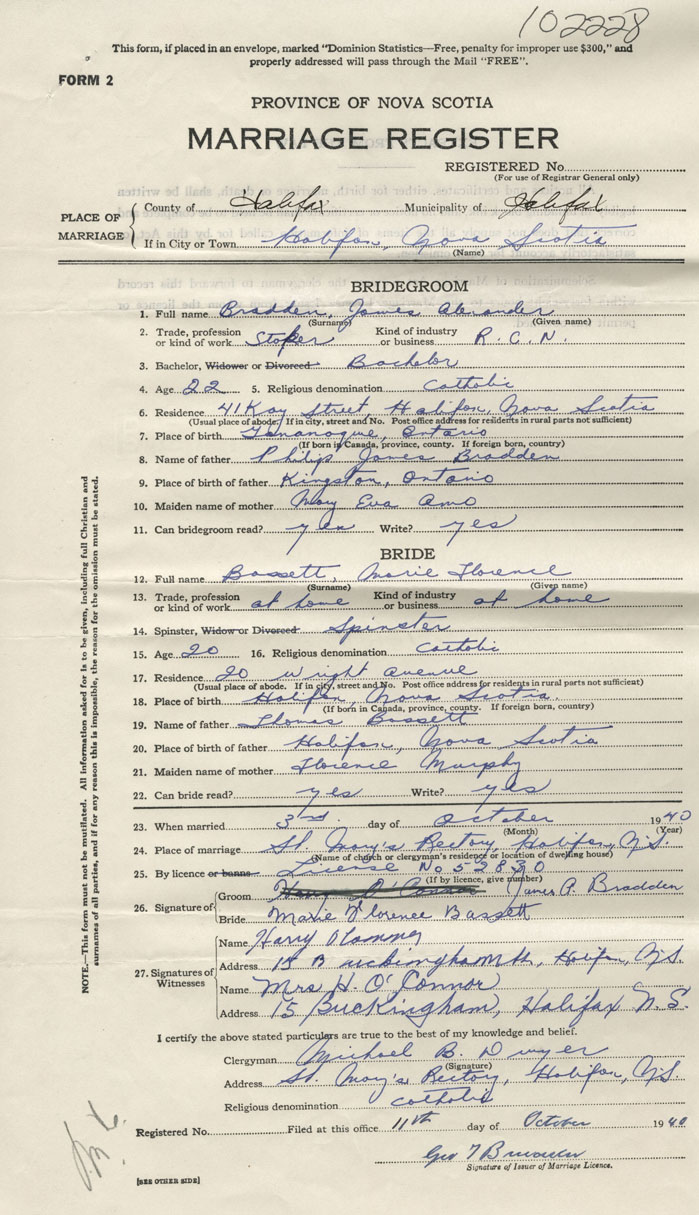 102228
This form, if placed in an envelope, marked "Dominion Statistics—Free, penalty for improper use $300," and
properly addressed will pass through the Mail "FREE".
FORM 2
PROVINCE OF NOVA SCOTIA
MARRIAGE REGISTER
REGISTERED No.
(For use of Registrar General only)
PLACE OF MARRIAGE
County of Halifax Municipality of Halifax
If in City or Town Halifax, Nova Scotia
(Name)
BRIDEGROOM
1. Full name Bradden, James Alexander
(Surname) (Given name)
2. Trade, profession or kind of work Stoker Kind of industry or business R.C.N.
3. Bachelor, Widower or Divorced Bachelor
4. Age 22 5. Religious denomination Catholic
6. Residence 41 Kay Street, Halifax, Nova Scotia
(Usual place of abode. If in city, street and No. Post office address for residents in rural parts not sufficient)
7. Place of birth Gananoque, Ontario
(If born in Canada, province, county. If foreign born, country)
8. Name of father Philip James Bradden
9. Place of birth of father Kingston, Ontario
10. Maiden name of mother Mary Eva Amo
11. Can bridegroom read? yes Write? yes
BRIDE
12. Full name Bassett, Marie Florence
(Surname) (Given name)
13. Trade, profession or kind of work at home Kind of industry or business at home
14. Spinster, Widow or Divorced Spinster
15. Age 20 16. Religious denomination Catholic
17. Residence 20 Wright Avenue
(Usual place of abode. If in city, street and No. Post office address for residents in rural parts not sufficient)
18. Place of birth Halifax, Nova Scotia.
(If born in Canada, province, county. If foreign born, country)
19. Name of father Thomas Bassett
20. Place of birth of father Halifax, Nova Scotia
21. Maiden name of mother Florence Murphy
22. Can bride read? yes Write? yes
23. When married 3rd. day of October 1940
(Month) (Year)
24. Place of marriage St. Mary's Rectory, Halifax, N.S.
(Name of church or clergyman's residence or location of dwelling house)
25. By licence or banns License No 53830
(If by licence, give number)
26. Signature of
Groom Harry O'Connor James A. Bradden
Bride Marie Florence Bassett
27. Signatures of Witnesses
Name Harry O'Connor
Address 15 Buckingham St, Halifax, N.S.
Name Mrs H. O'Connor
Address 15 Buckingham, Halifax N.S.
I certify the above stated particulars are true to the best of my knowledge and belief.
Clergyman Michael B. Dwyer
(Signature)
Address St. Mary's Rectory, Halifax, N.S.
Religious denomination Catholic
Registered No. Filed at this office 11th day of October 1940
Geo
Signature of Issuer of Marriage Licence.
[SEE OTHER SIDE]
NOTE.—This form must not be mutilated. All information asked for is to be given, including full Christian and
surnames of all parties, and if for any reason this is impossible, the reason for the omission must be stated.